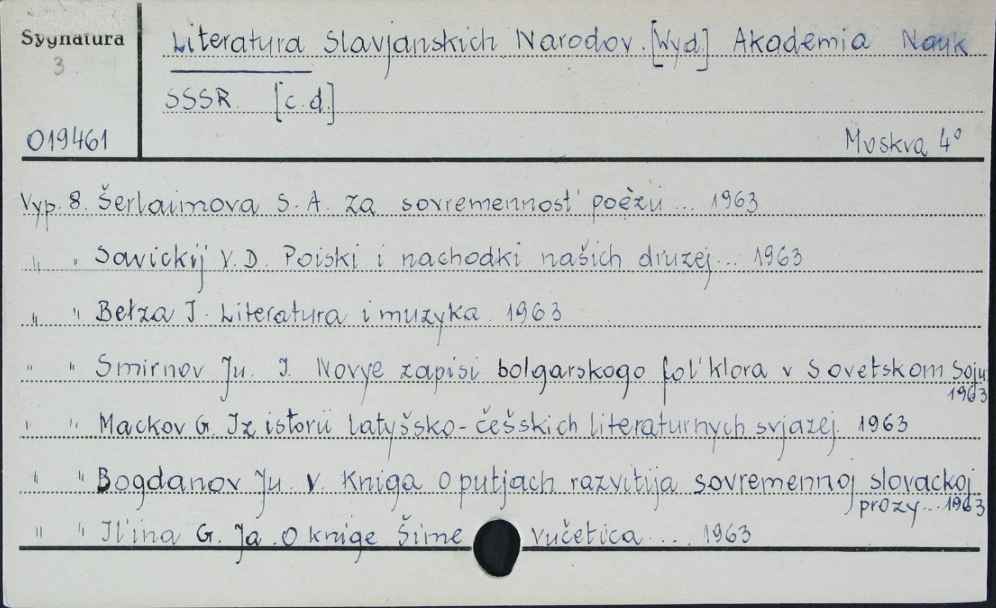 Sygnatura
3
Literatura Slavjanskich Narodov. [Wyd.] Akademia Nauk
SSSR. [c.d.]
019461
Moskva 4°
Vyp. 8. Šerlaimova S. A. Za sovremennost' poèzii ... 1963
" " Savickij V. D. Poiski i nachodki našich druzej ... 1963
" " Bełza I. Literatura i muzyka. 1963
" " Smirnov Ju. I. Novye zapisi bolgarskogo fol'klora v Sovetskom Soju
1963
" " Mackov G. Iz istorii latyšsko-češskich literaturnych svjazej. 1963
" " Bogdanov Ju. V. Kniga o putjach razvitija sovremennoj slovackoj
prozy ... 1963
" " Il'ina G. Ja. O knige Šime Vučetica .... 1963